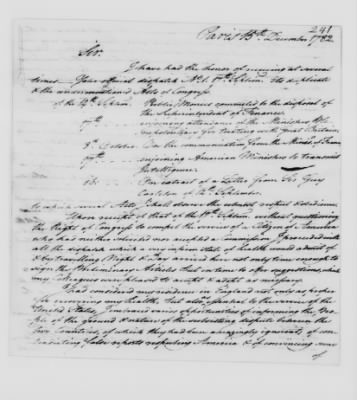 241
Paris 15th December 1782
Sir.
I have had the honor of receiving at several
times Your official dispatch No. 1. 17th Septem. its duplicate
& the undermentioned Acts of Congress
of the Septem. Public Monies committed to the disposal of
the Superintendent of Finance
17th enjoining attendance of the Ministers
for treating with Great Britain,
3d October. On the communication from the Minister of France
enjoining American Ministers to transmit
Intelligence
An extract of a Letter from Sir Guy
Carleton of 12th September
to Acts, I shall shew the utmost respect & obedience.
Upon receipt of that of the 17th Septem. without questioning
the Right of Congress to compel the service of a Citizen of America
who had neither solicited nor accepted a commission I proceeded with
all the dispatch which a very infirm state of health would admit of
& by travelling Night & Day arrived here not only time enough to
sign the Preliminary Articles but in time to offer suggestions, which
my Colleagues were pleased to accept & adopt as necessary.
I had considered my residence in England not only as proper
for recovering my health, but also essential to the service of the
United States, I embraced various opportunities of informing the Peo-
ple of the ground & nature of the subsisting dispute between the
two Countries, of which they had been amazingly ignorant; of con-
tradicting false reports respecting America & of convincing some
of